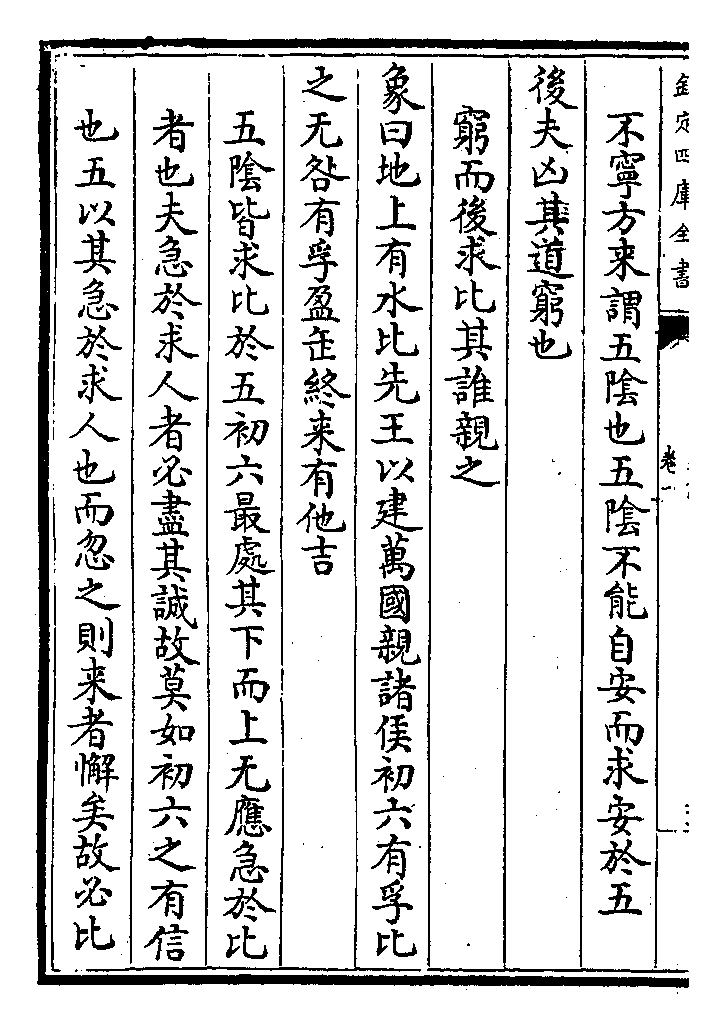 欽定四庫全書
卷一
不寧方来謂五陰也五陰不能自安而求安於五
後夫凶其道窮也
窮而後求比其誰親之
象曰地上有水比先王以建萬國親諸侯初六有孚比
之无咎有孚盈缶終来有他吉
五陰皆求比於五初六最處其下而上无應急於比
者也夫急於求人者必盡其誠故莫如初六之有信
也五以其急於求人也而忽之則来者懈矣故必比